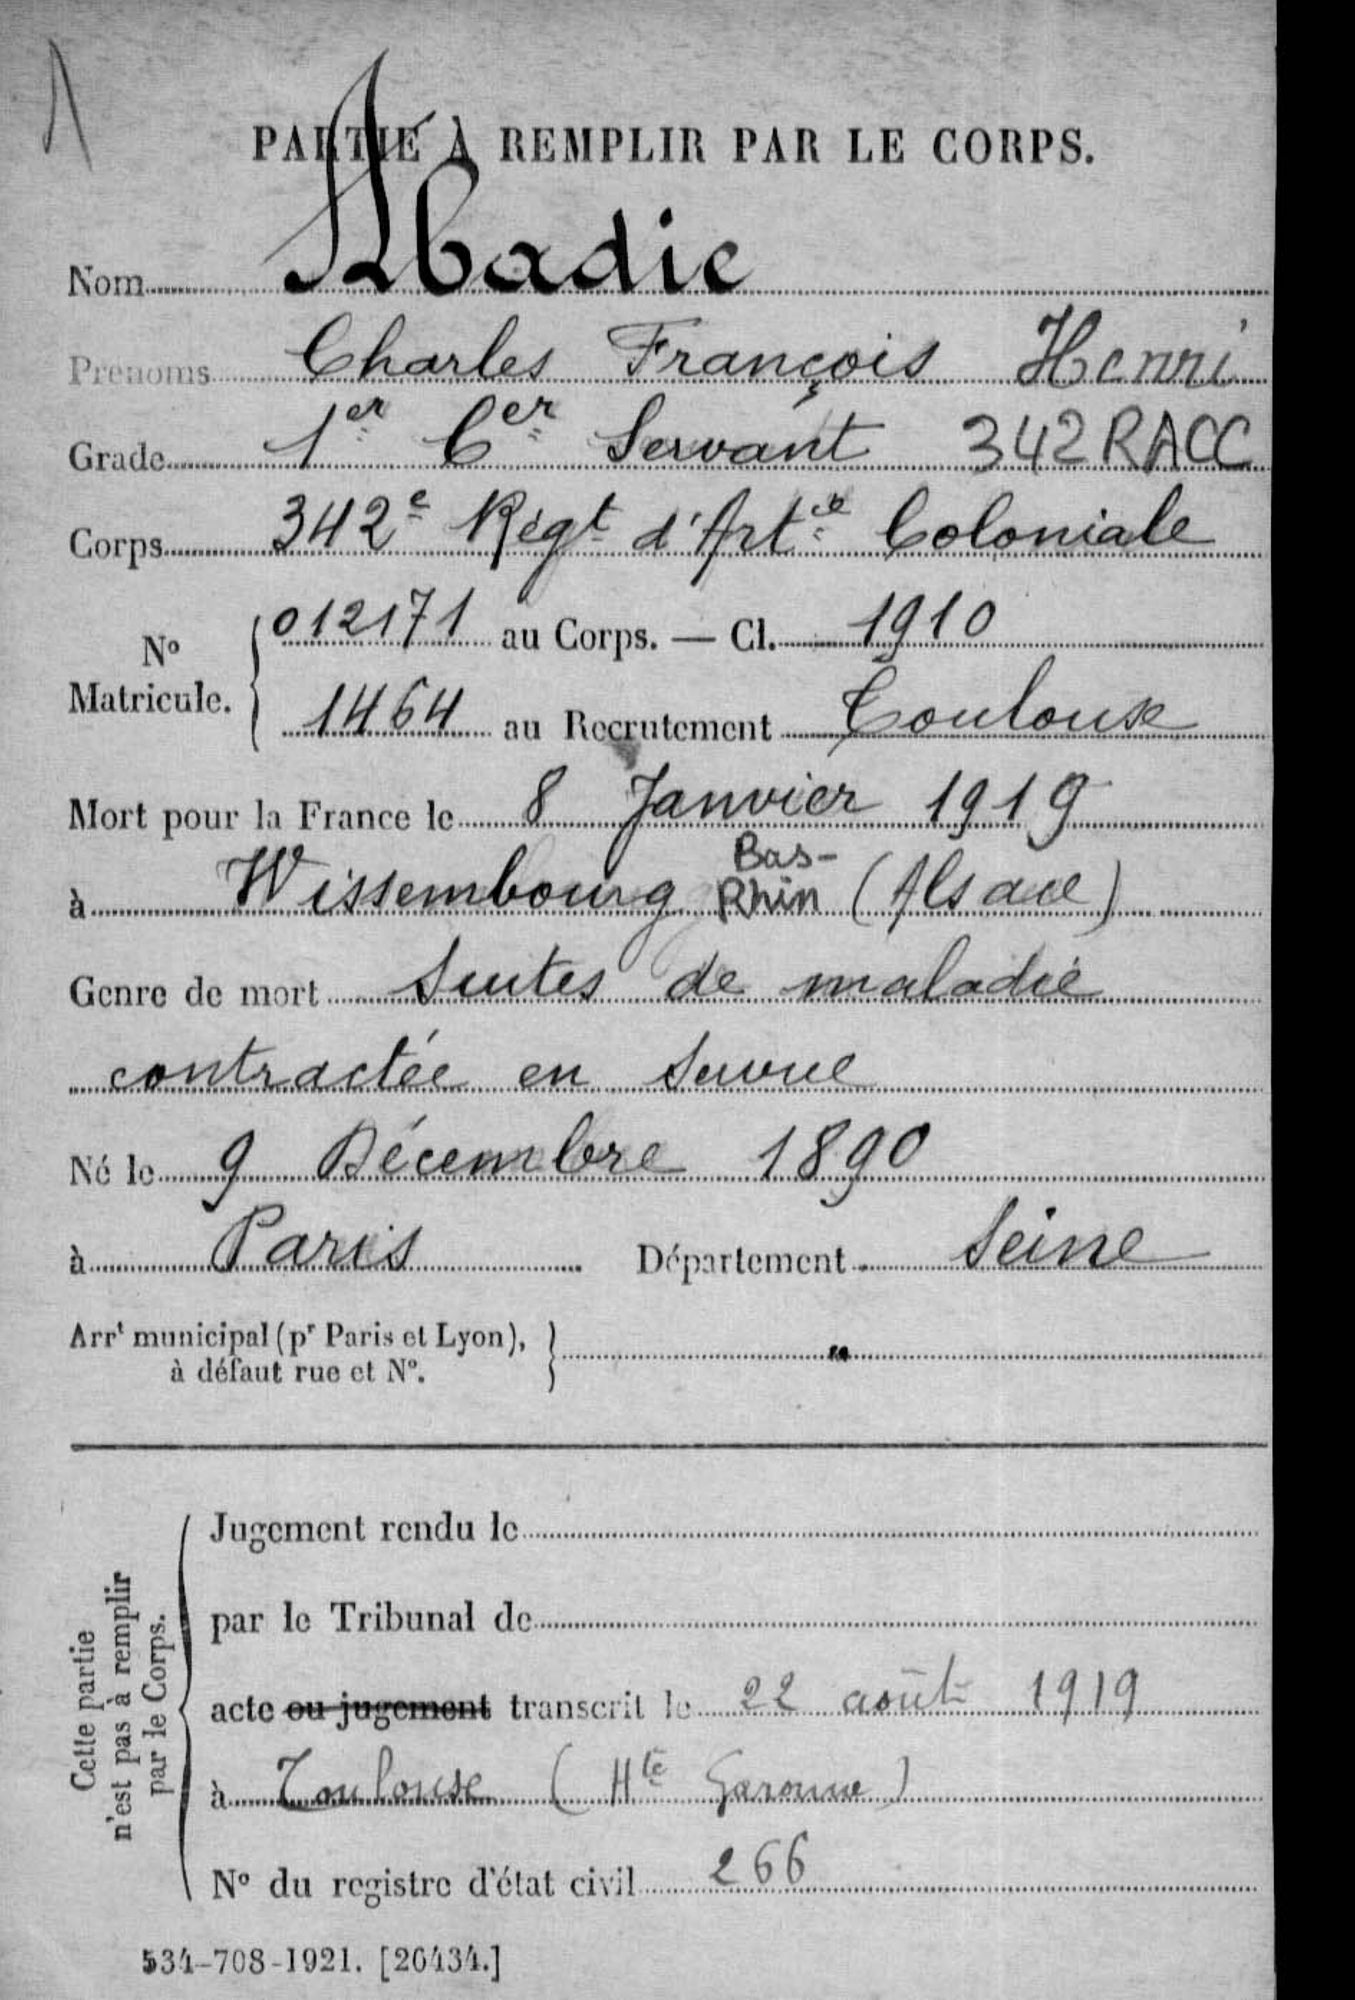 PARTIE À REMPLIR PAR LE CORPS.
Nom Abadie
Prénoms Charles François Henri
Grade 1er Cer Servant 342 RACC
Corps 342e Régt d'Artie Coloniale
No Matricule. 012171 au Corps. — Cl. 1910
1464 au Recrutement Toulouse
Mort pour la France le 8 Janvier 1919
à Wissembourg Bas-Rhin (Alsace)
Genre de mort Suites de maladie
contractée en Service
Né le 9 Décembre 1890
à Paris Département Seine
Arrt municipal (pr Paris et Lyon),
à défaut rue et No. "
Cette partie
n'est pas à remplir
par le Corps.
Jugement rendu le
par le Tribunal de
acte ou jugement transcrit le 22 août 1919
à Toulouse (Hte Garonne)
No du registre d'état civil 266
534-708-1921. [26434.]